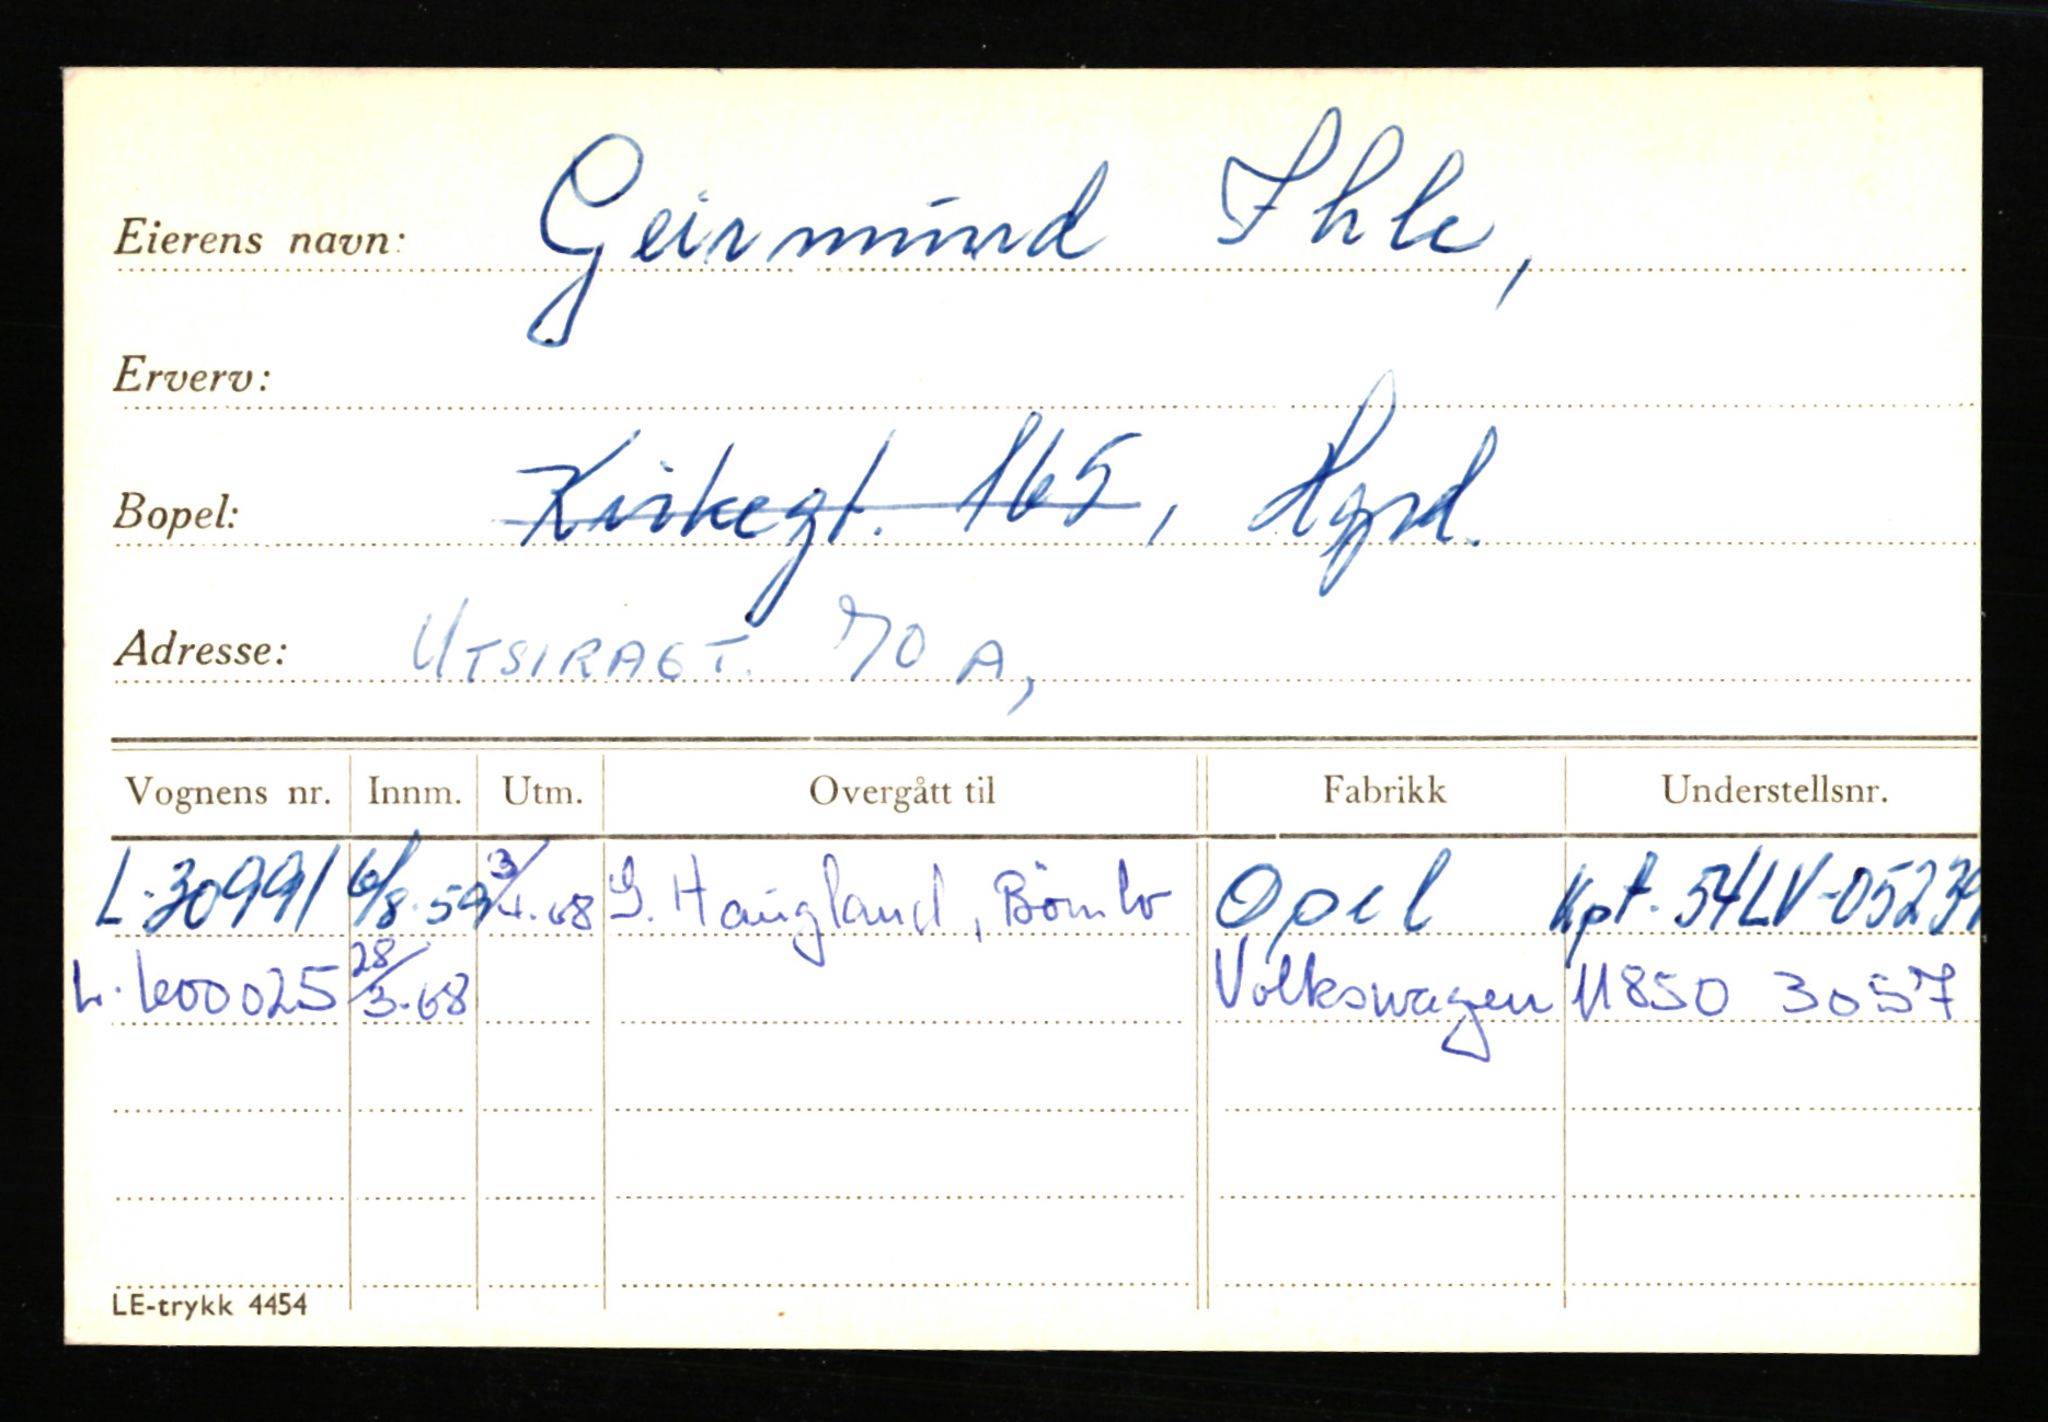 Eierens navn: Geirmund Ihle,
Erverv:
Bopel: Kirkegt. 165, Hgsd.
Adresse: UTSIRAGT. 70 A,
Vognens nr. Innm. Utm. Overgått til Fabrikk Understellsnr.
L-30991 6/8.59 3/4.68 G. Haugland, Bömlo Opel Kpt. 54LV-05239
L. 600025 28/3.68 Volkswagen 118503057
LE-trykk 4454